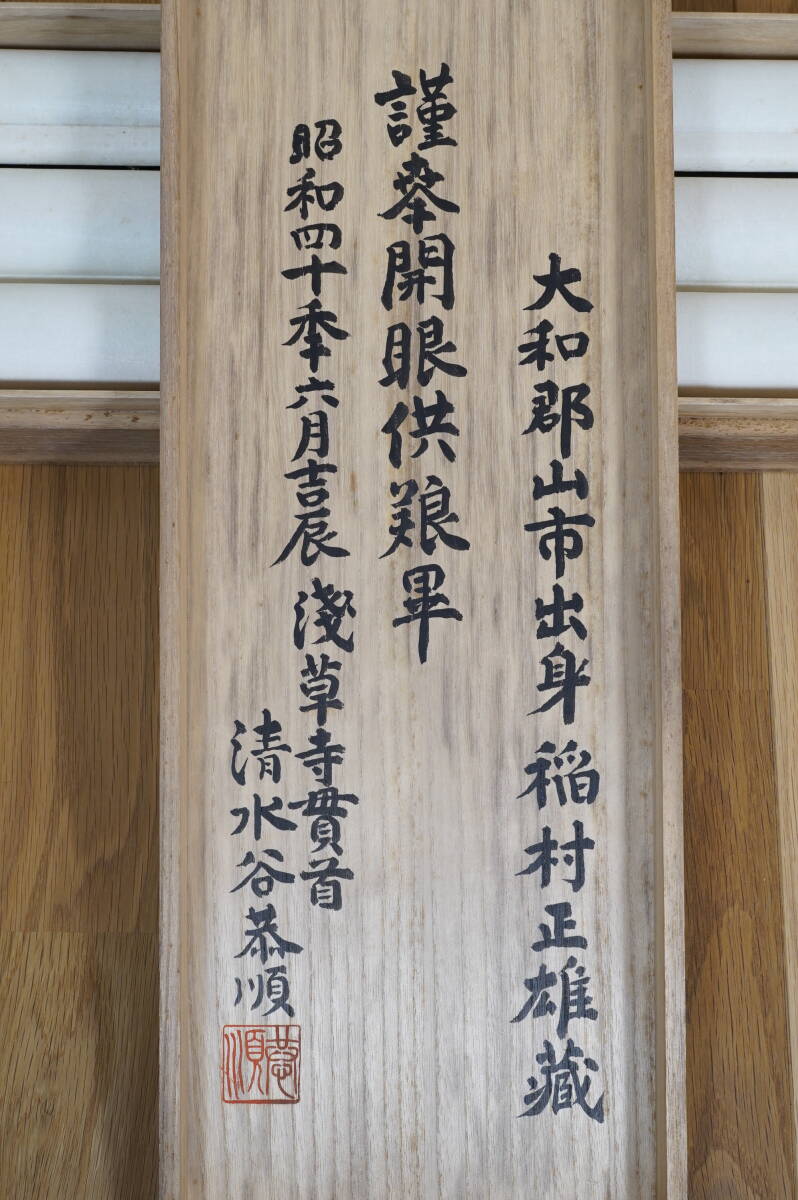 大和郡山市出身 稲村正雄藏
謹奉開眼供養畢
昭和四十季六月吉辰 淺草寺貫首
清水谷恭順
恭順